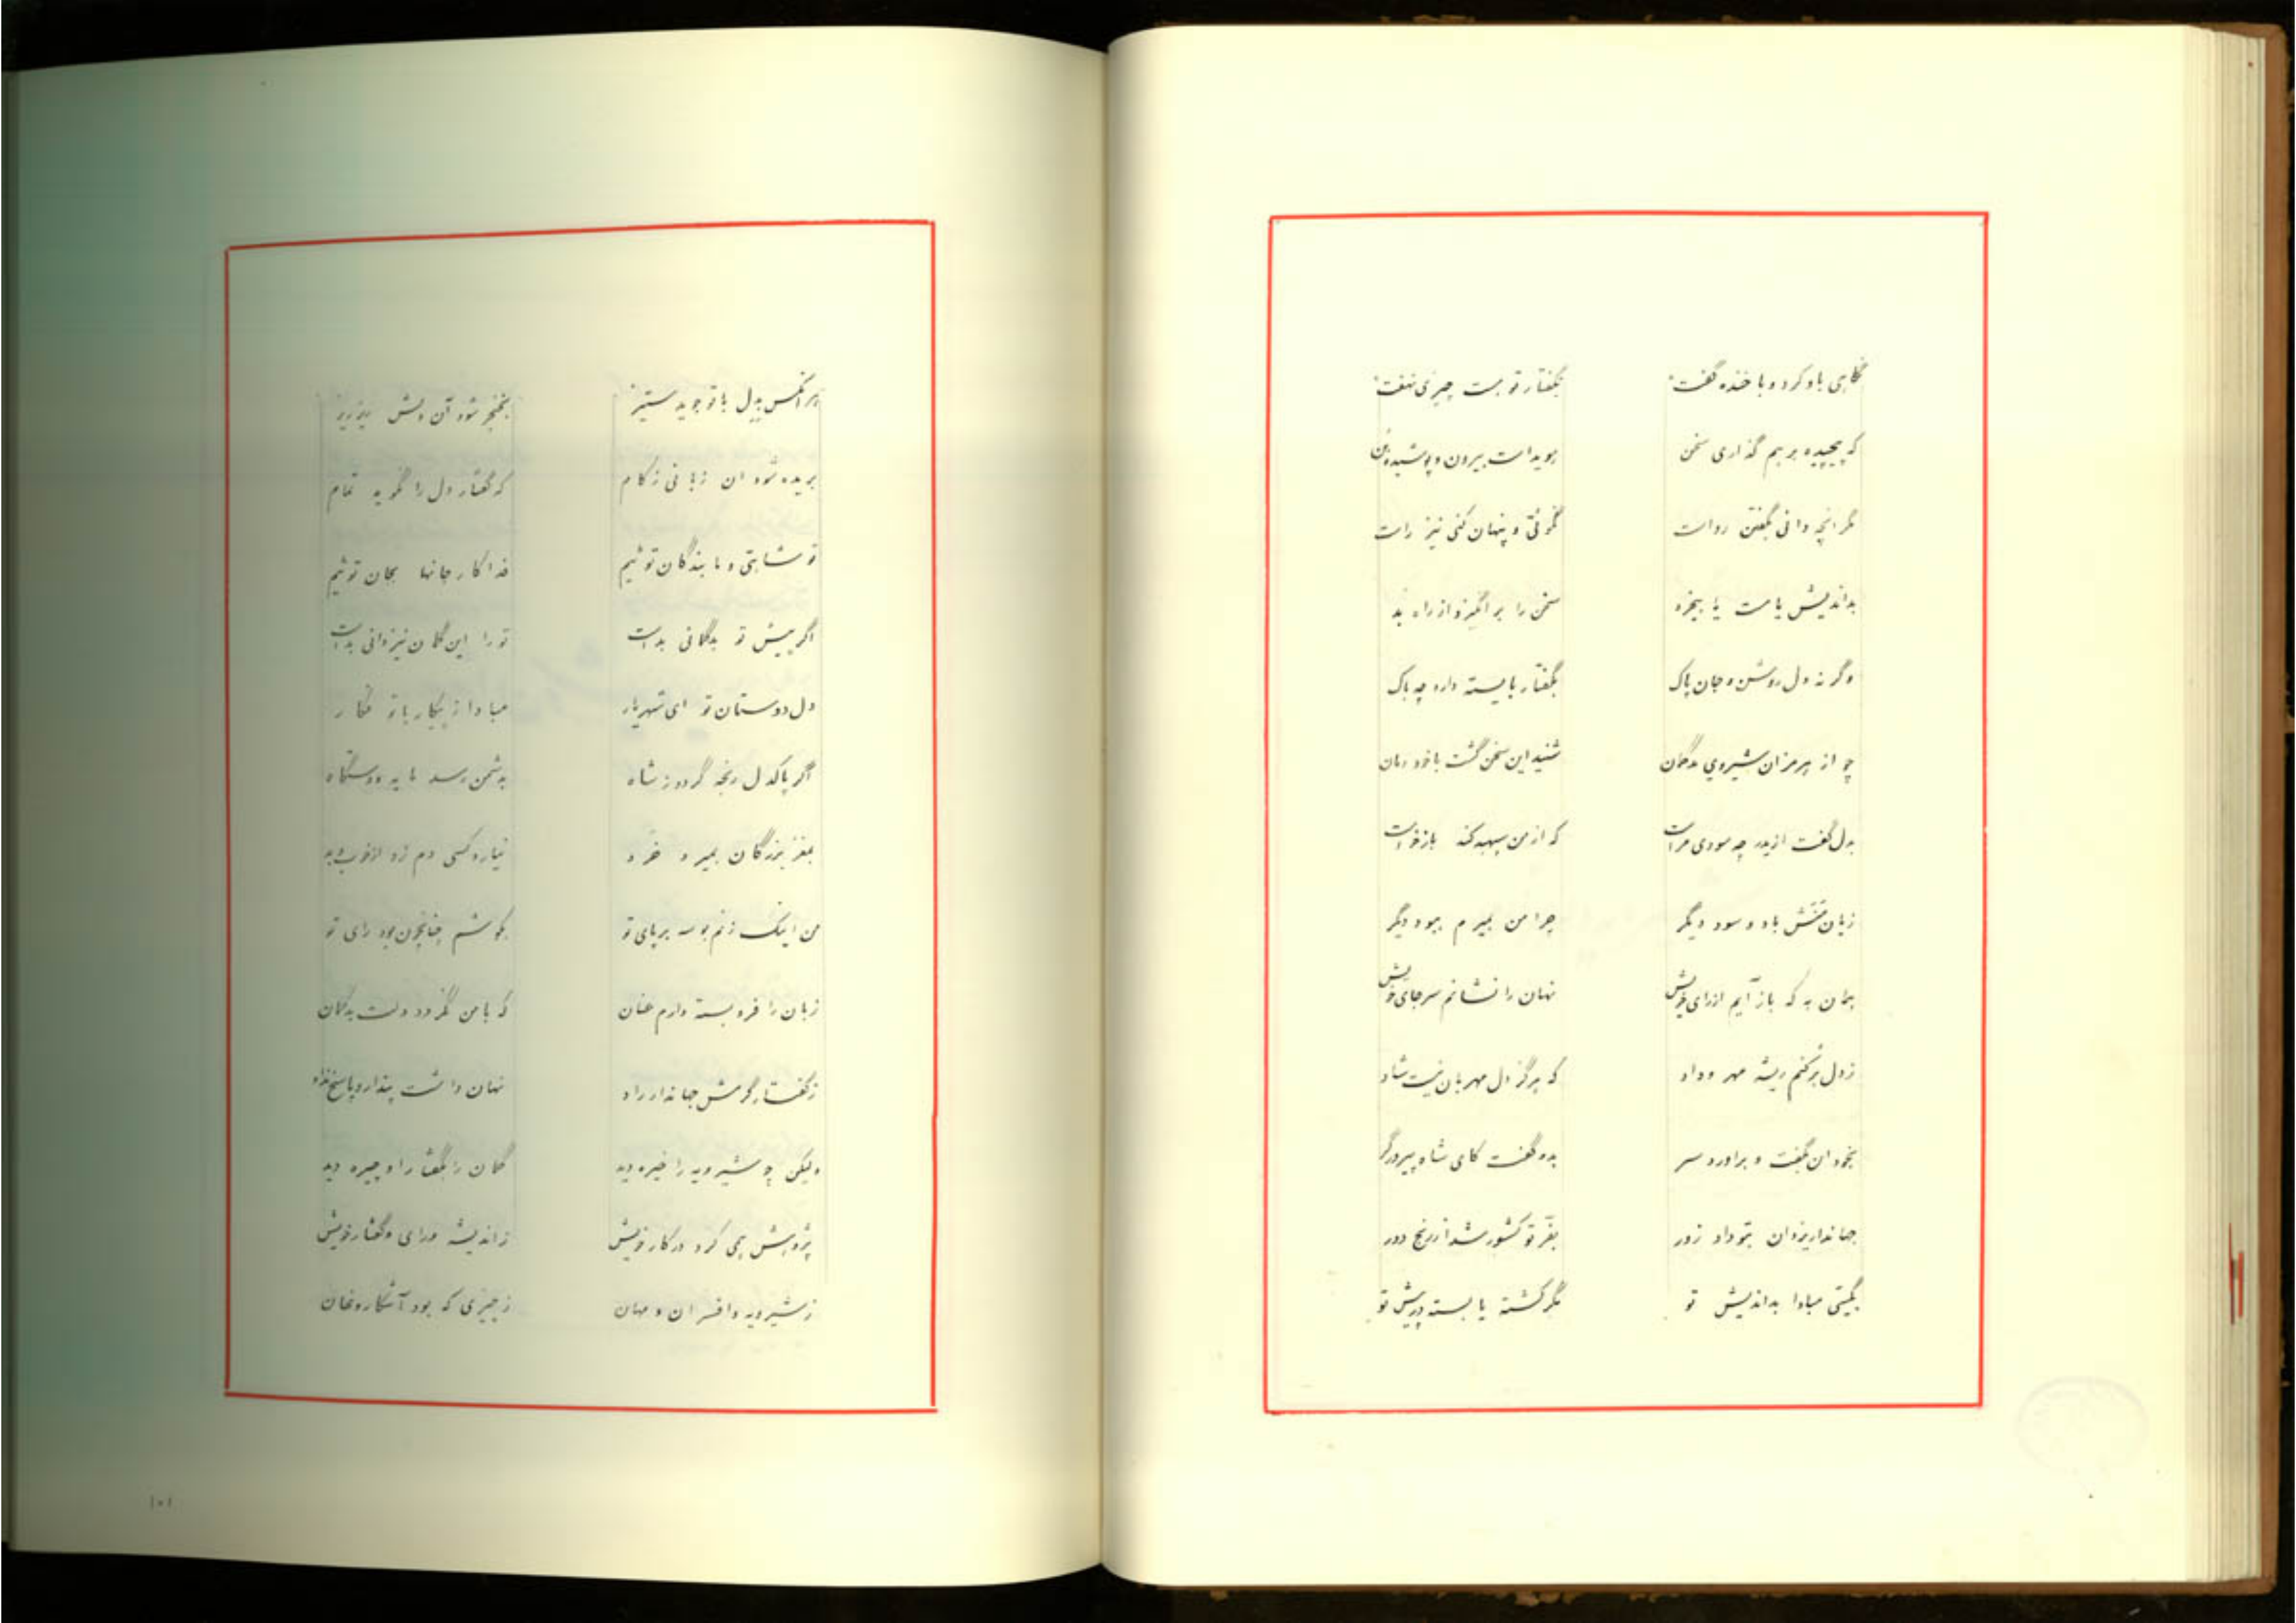 نگاهی باو کرد و با خنده گفت بگفتار تو هست چیزی نهفت
که پیچیده بر هم گذاری سخن هویداست بیرون و پوشیده بن
مگر انچه دانی بگفتن رواست نگوئی و پنهان کنی نیز راست
بداندیش یا مست یا بیخرد سخن را بر انگیزد از راه بد
وگر نه دل روشن و جان پاک بگفتار بایسته دارد چه باک
چو از هرمزان شیروی بدگمان شنید این سخن گشت با خود دمان
بدل گفت ازیدر چه سودی مراست که از من سپهبد کند بازخواست
زیان منش باد و سود دیگر چرا من بمیرم ببود دیگر
همان به که باز آیم ازرای خویش نهان را نشانم سرجای خویش
زدل برکنم ریشه مهر وداد که هرگز دل مهربان نیست شاد
بخود ان بگفت و براورد سر بدو گفت کای شاه پیروزگر
جهاندار یزدان بتو داد زور بفر تو کشور شد از رنج دور
بگیتی مبادا بداندیش تو مگر کشته یا بسته در پیش تو
هر انکس بدل با تو جوید ستیز بخنجر شود آن دلش ریز ریز
بریده شود ان زبانی ز کام که گفتار دل را نگوید تمام
تو شاهی و ما بندگان توئیم فداکار جانها بجان توئیم
اگر پیش تو بدگمانی بداست تو را این گمان نیز دانی بداست
دل دوستان تو ای شهریار مبادا ز پیکار با تو فکار
اگر پاکدل رنجه گردد ز شاه بدشمن رسد مایه و دستگاه
بمغز بزرگان بمیرد خرد نیارد کسی دم زد از خوب و بد
من اینک زنم بوسه بر پای تو بکوشم چنانچون بود رای تو
زبان را فرو بسته دارم عنان که با من نگردد دلت بدگمان
ز گفتار گرمش جهاندار راد نهان داشت پندار و پاسخ نداد
ولیکن چو شیرویه را خیره دید گمان را بگفتار او چیره دید
پژوهش همی کرد در کار خویش ز اندیشه و رای و گفتار خویش
ز شیرویه و افسران و مهان ز چیزی که بود آشکار و نهان
۱۰۱